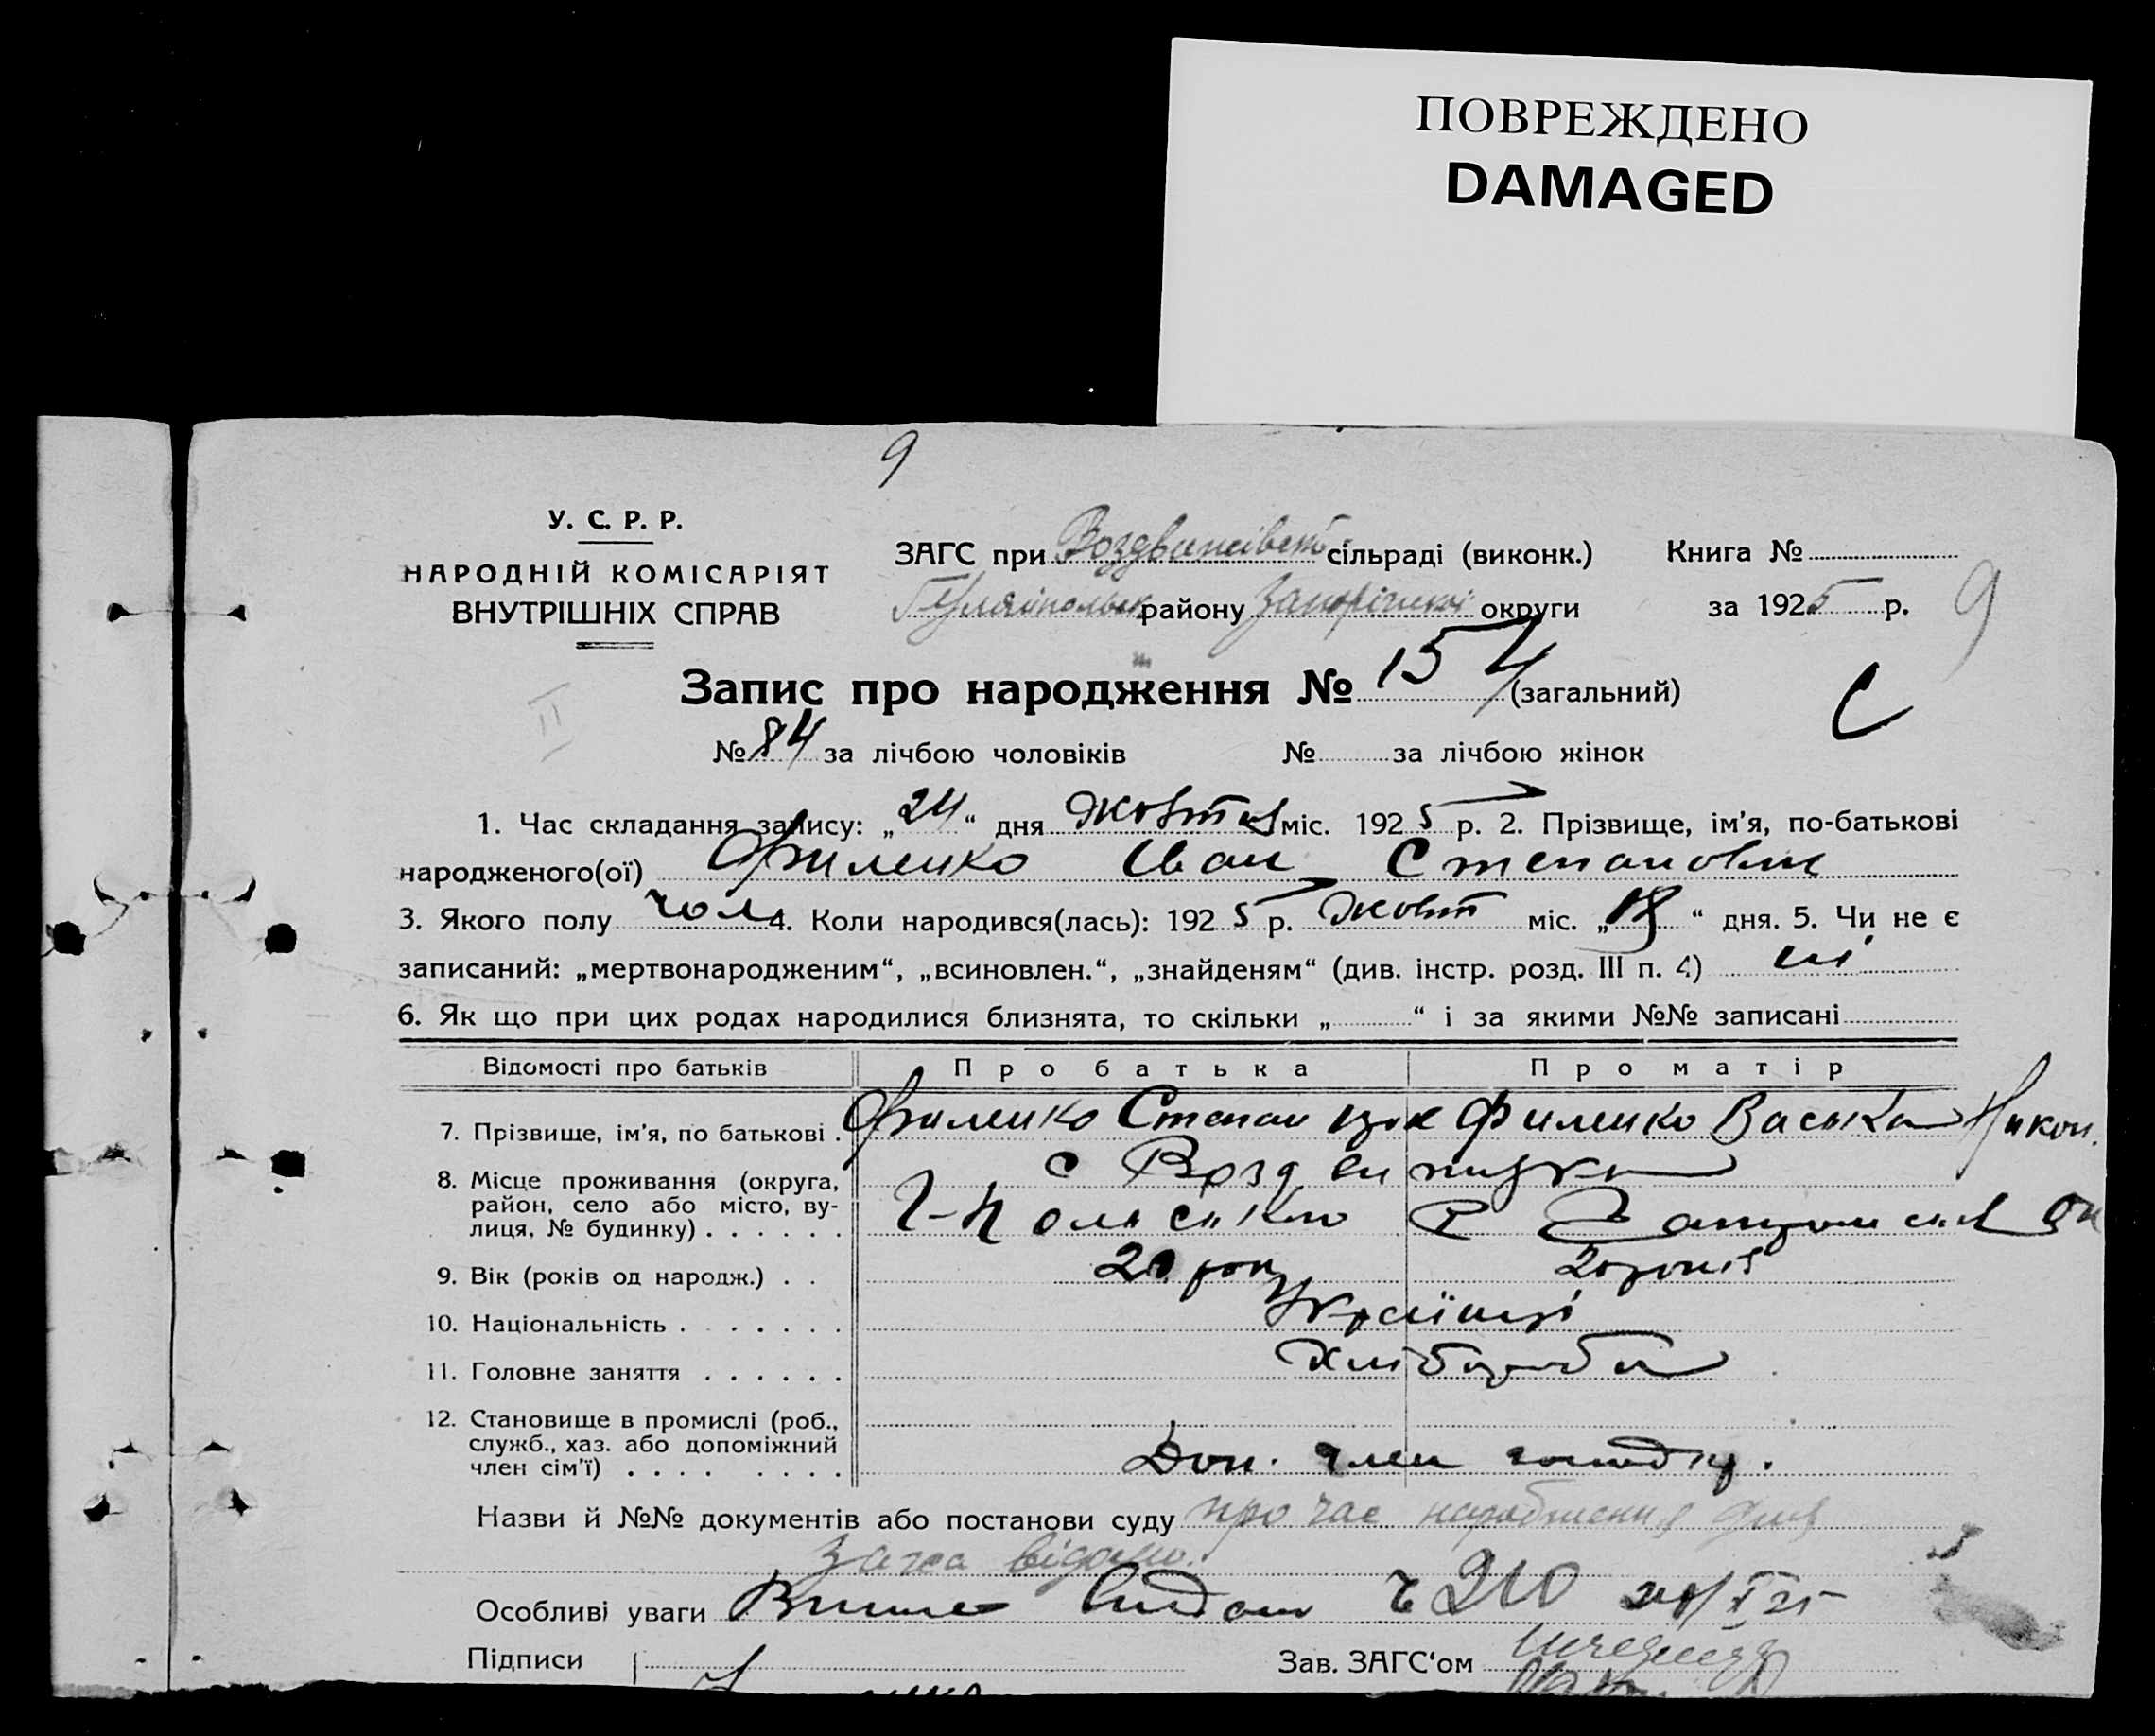 ПОВРЕЖДЕНО
DAMAGED
9
У. С. Р. Р.
НАРОДНІЙ КОМІСАРІЯТ
ВНУТРІШНІХ СПРАВ
ЗАГС при Воздвижівськ сільраді (виконк.) Книга №
Гуляйпольськ району Запорізької округи за 1925 р. 9
Запис про народження № 154 (загальний)
II
С
№ 84 за лічбою чоловіків № за лічбою жінок
1. Час складання запису: „24“ дня Жовтня міс. 1925 р. 2. Прізвище, ім’я, по-батькові
народженого(ої) Филенко Іван Степанович
3. Якого полу чол 4. Коли народився(лась): 1925 р. Жовт міс. „18“ дня. 5. Чи не є
записаний: „мертвонародженим“, „всиновлен.“, „знайденям“ (див. інстр. розд. III п. 4) ні
6. Як що при цих родах народилися близнята, то скільки „ “ і за якими №№ записані
Відомості про батьків Про батька Про матір
7. Прізвище, ім’я, по батькові . Филенко Степан Филенко Васька Никон.
8. Місце проживання (округа,
район, село або місто, ву-
лиця, № будинку) . . . . . .
с Воздвижузка
Г-Польсько Р
9. Вік (років од народж.) . . 20 рок 20 років
10. Національність . . . . . . . Українці
11. Головне заняття . . . . . . Хлібороби
12. Становище в промислі (роб.,
служб., хаз. або допоміжний
член сім’ї) . . . . . . . .
Доп. член
Назви й №№ документів або постанови суду про час народження для
Загса відомо.
Особливі уваги видано № 210 25
Підписи Зав. ЗАГС‘ом